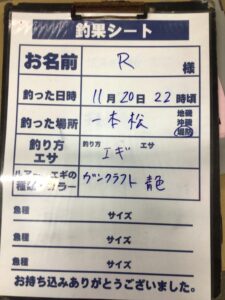 釣果シート
お名前 R 様
釣った日時 11月20日 22時頃
釣った場所 一本松 地磯 沖磯 堤防
釣り方 エサ 釣り方 エギ エサ
ルアー、エギの種類・カラー ガンクラフト 青色
魚種 サイズ
魚種 サイズ
魚種 サイズ
お持ち込みありがとうございました。